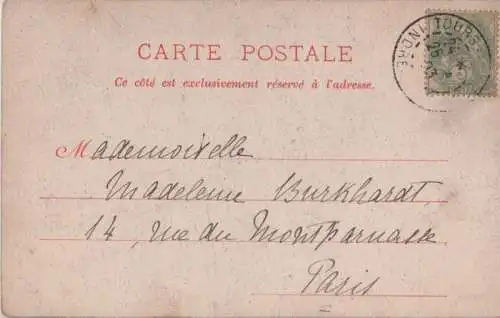 CARTE POSTALE
TOURS
Ce côté est exclusivement réservé à l'adresse.
Mademoiselle
Madeleine Burkhardt
14, rue du Montparnasse
Paris